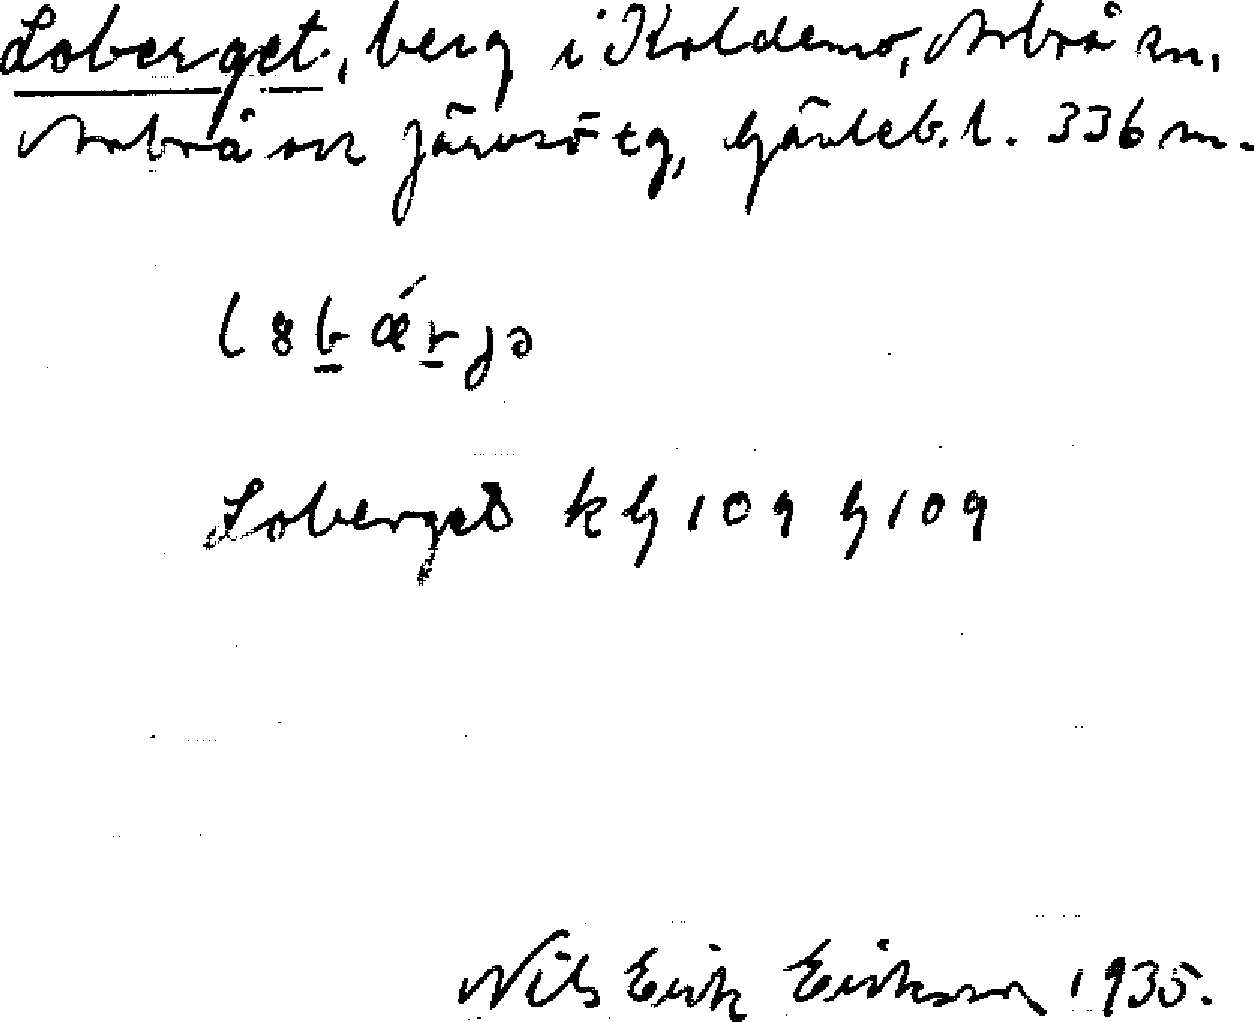 Loberget, berg i Koldemo, Arbrå sn,
Arbrå och Järvsö tg, Gävleb. l. 336 m.
l8bǽrjə
Loberget k G 109 G 109
Nils Erik Erikson 1935.